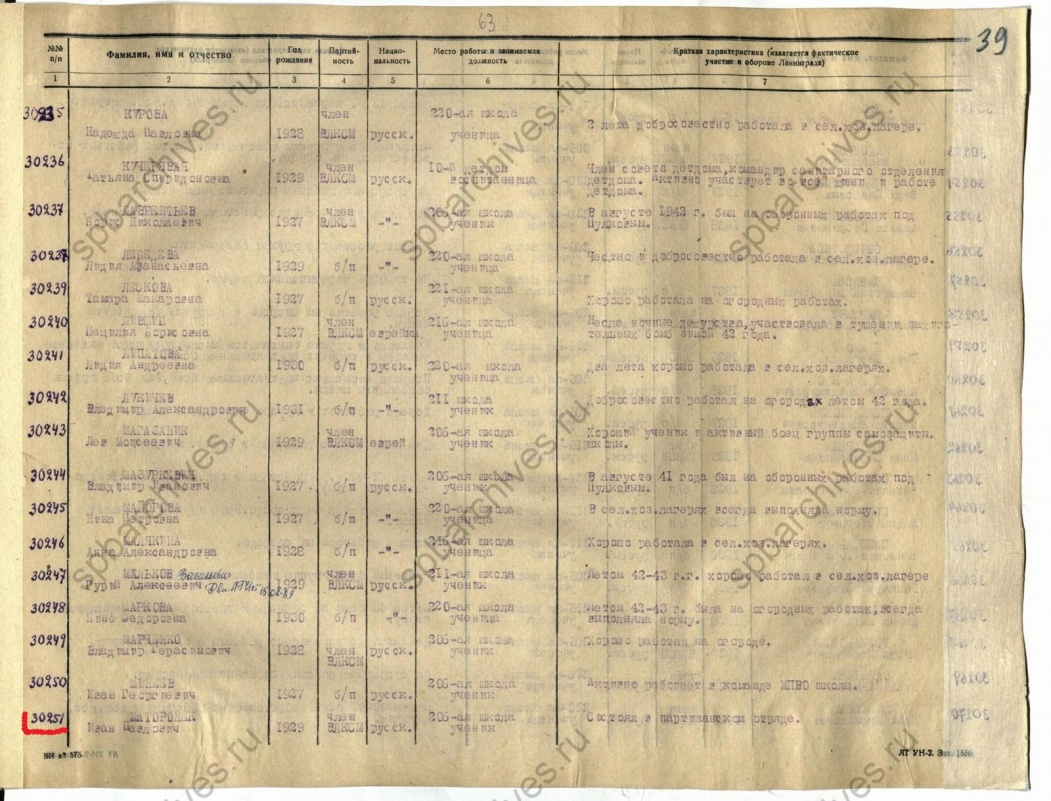 63
39
№№ п/п
Фамилия, имя и отчество
Год рождения
Партийность
Национальность
Место работы и занимаемая должность
Краткая характеристика (излагается фактическое участие в обороне Ленинграда)
1 2 3 4 5 6 7
30235 КУРОВА член 220-ая школа
Надежда Павловна 1928 ВЛКСМ русск. ученица 2 лета добросовестно работала в сел.хоз.лагере.
30236 член 10-й детдом Член совета детдома, командир санитарного отделения
Татьяна Спиридоновна 1929 ВЛКСМ русск. воспитанница детдома. Активно участвует во всей и работе
детдома.
30237 ЛАВРЕНТЬЕВ член 206-ая школа В августе 1942 г. был на оборонных работах под
Николаевич 1927 ВЛКСМ -"- ученик Пулковым.
30238 ЛЕБЕДЕВА 220-ая школа Честно и добросовестно работала в сел.хоз.лагере.
Лидия Афанасьевна 1929 б/п -"- ученица
30239 ЛЕСКОВА 221-ая школа
Тамара Макаровна 1927 б/п русск. ученица Хорошо работала на огородных работах.
30240 член 216-ая школа Несла ночные дежурства, участвовала в тушении зажига-
Цецилия Борисовна 1927 ВЛКСМ еврейка ученица тельных бомб зимой 42 года.
30241 ЛИПАТОВА
Лидия Андреевна 1930 б/п русск. 220-ая школа Два лета хорошо работала в сел.хоз.лагерях.
ученица
30242 ЛУКИЧЕВ 211 школа Добросовестно работал на огородах летом 42 года.
Владимир Александрович 1931 б/п -"- ученик
30243 МАГАЗАНИК член 206-ая школа Хороший ученик и активный боец группы самозащиты.
Лев Моисеевич 1929 ВЛКСМ еврей ученик школы.
30244 МАЗУРКЕВИЧ 206-ая школа В августе 41 года был на оборонных работах под
Владимир Иванович 1927 б/п русск. ученик Пулковым.
30245 МАЙОРОВА 220-ая школа В сел.хоз.лагерях всегда выполняла норму.
Нина Петровна 1927 б/п -"- ученица
30246 216-ая школа Хорошо работала в сел.хоз.лагерях.
Анна Александровна 1928 б/п -"- ученица
30247 МИЛЬКОВ член 211-ая школа Летом 42-43 г.г. хорошо работал в сел.хоз.лагере
Алексеевич 1929 ВЛКСМ русск. ученик
30248 МАРКОВА 220-ая школа Летом 42-43 г. была на огородних работах, всегда
Федоровна 1930 б/п -"- ученица выполняла норму.
30249 МАРЧЕНКО 206-ая школа Хорошо работал на огороде.
Владимир Герасимович 1928 член русск. ученик
ВЛКСМ
30250 206-ая школа Активно работает в команде МПВО школы.
Иван Георгиевич 1927 б/п русск. ученик
30251 член 206-ая школа Состоял в партизанском отряде.
Иван Павлович 1929 ВЛКСМ русск. ученик
ЛТ УН-2.
spbarchives.ru